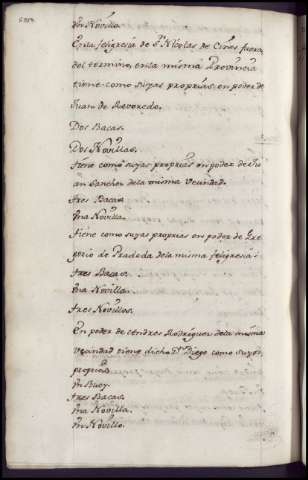 Vn Novillo.
En la feligresia de Sn. Nicolas de Cines fuera
del termino, en la misma Provincia
tiene como suyas proprias, en poder de
Juan de Reboredo.
Dos Bacas.
Dos Novillas.
Tiene como suyas proprias en poder de Ju
an Sanchez dela misma Vecindad.
tres Bacas.
Vna Novilla.
tiene como suyas proprias en poder de Gre
gorio de Pradeda dela misma feligresia.
tres Bacas.
Vna Novilla.
tres Novillos.
En poder de Andres Rodriguez dela misma
Vecindad tiene dicho Dn. Diego como suyos
proprios
Vn Buey.
tres Bacas.
Vna Novilla.
Vn Novillo.